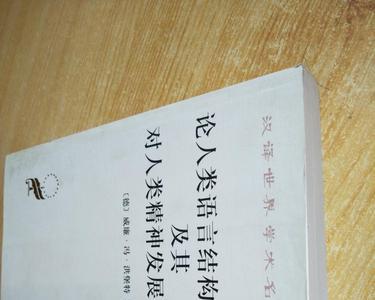 汉译世界学术名
论人类语言结构
及其
对人类精神发展
〔德〕威廉·冯·洪堡特